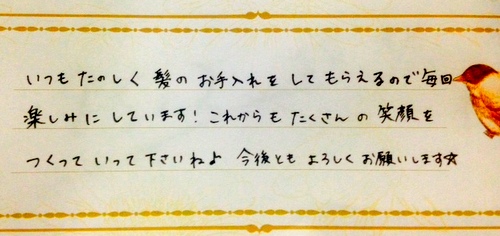 いつもたのしく髪のお手入れをしてもらえるので毎回
楽しみにしています!これからもたくさんの笑顔を
つくっていって下さいねよ 今後ともよろしくお願いします☆